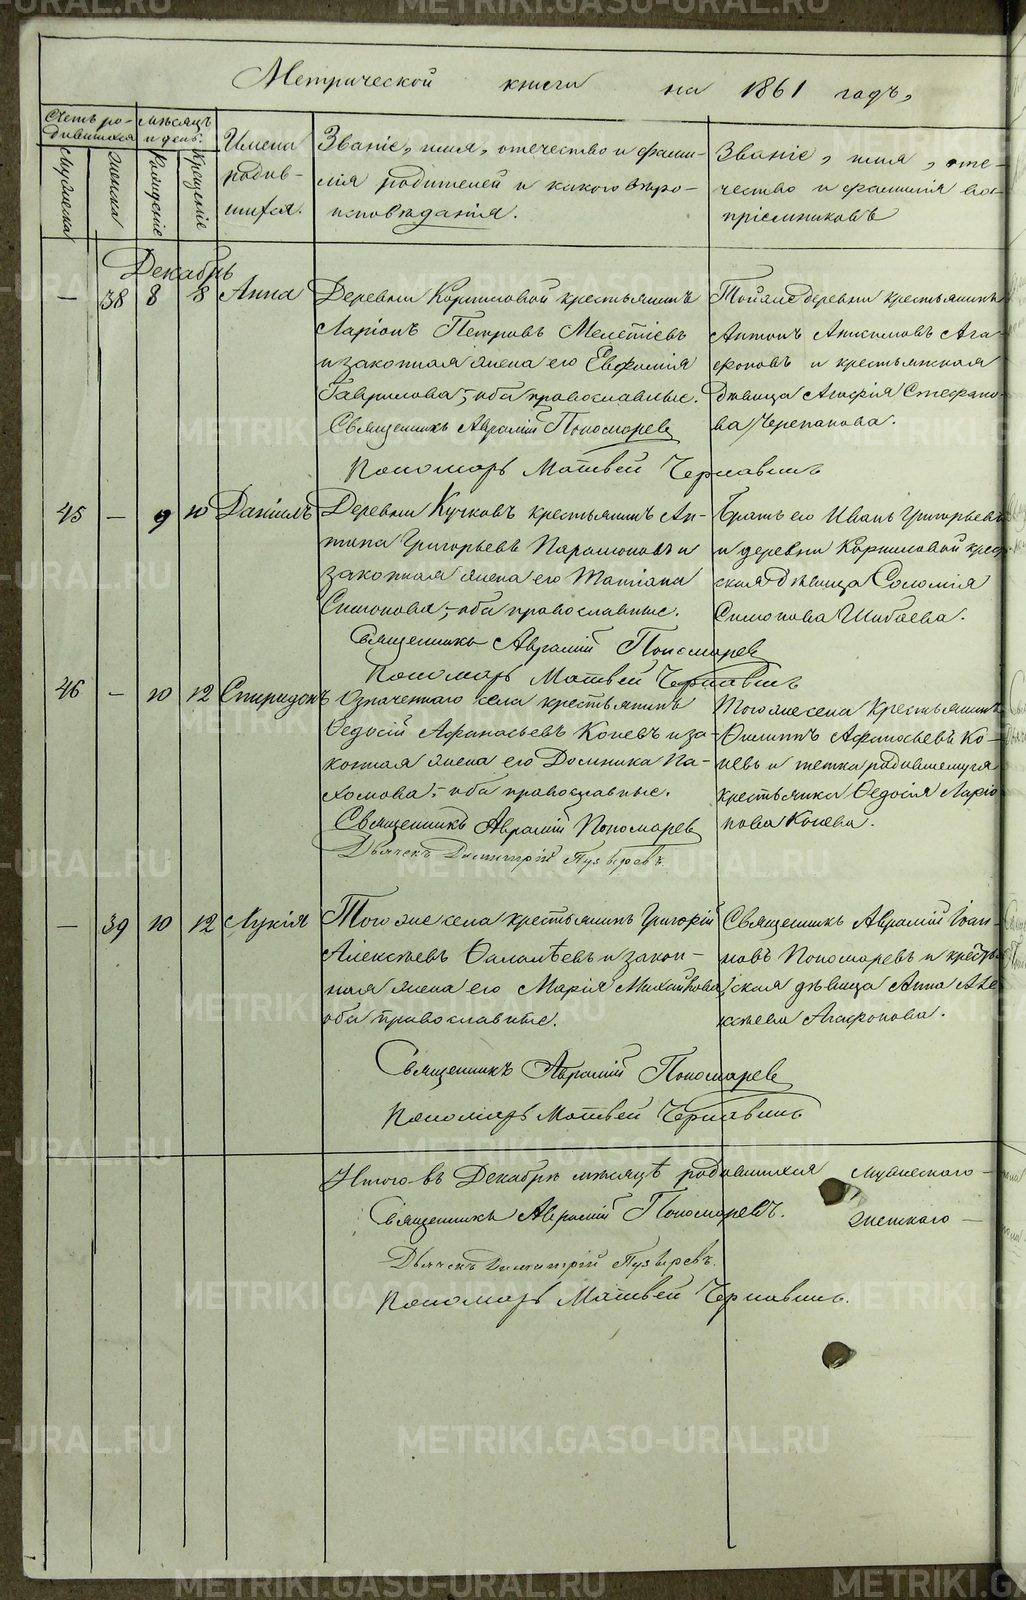 Метрической книги на 1861 годъ,
Счетъ ро-
дившихся
Мѣсяцъ
и день.
Мужеска
Женска
Рожденіе
Крещеніе
Имена
родив-
шихся.
Званіе, имя, отечество и фами-
лія родителей и какого вѣро-
исповѣданія.
Званіе, имя, оте-
чество и фамилія вос-
пріемниковъ
Декабрь
— 38 8 8 Анна
Деревни Кориловой крестьянинъ
Ларіонъ Петровъ Мелетіевъ
и законная жена его Евфимія
Гаврилова, оба православные.
Священникъ Аврамій Пономарев
Пономарь Матвей Чернавинъ
Тойже деревни крестьянинъ
Антонъ Анисимовъ Ага-
фоновъ и крестьянская
дѣвица Агафія Стефано-
ва Черепанова.
45 — 9 10 Даніилъ
Деревни Кучковъ крестьянинъ Ан-
типа Григорьевъ Парамоновъ и
законная жена его Татіана
Симонова, оба православные.
Священникъ Аврамій Пономарев
Пономарь Матвей Чернавинъ
Братъ его Иванъ Григорьевъ
и деревни Кориловой крес-
ская дѣвица Соломія
Симонова Шибаева.
46 — 10 12 Спиридонъ
Означеннаго села крестьянинъ
Ѳедосій Афанасьевъ Коневъ и за-
конная жена его Домника Па-
хомова, оба православные.
Священникъ Аврамій Пономарев
Дьячекъ Димитрій Пузыревъ
Тогоже села крестьянинъ
Филиппъ Афанасьевъ Ко-
невъ и тетка родившемуся
крестьянка Ѳедосія Ларіо
нова Конева.
— 39 10 12 Лукія
Тогоже села крестьянинъ Григорій
Алексѣевъ Ѳалалѣевъ и закон-
ная жена его Марія Михайлова
оба православные.
Священникъ Аврамій Пономарев
Пономарь Матвей Чернавинъ
Священникъ Аврамій Іоан-
новъ Пономаревъ и крестьян-
ская дѣвица Анна Але
ксѣева Агафонова.
Итого въ Декабрѣ мѣсяцѣ родившихся мужескаго —
Священникъ Аврамій Пономаревъ. женскаго —
Дьячекъ Димитрій Пузыревъ.
Пономарь Матвей Чернавинъ.
METRIKI.GASO-URAL.RU